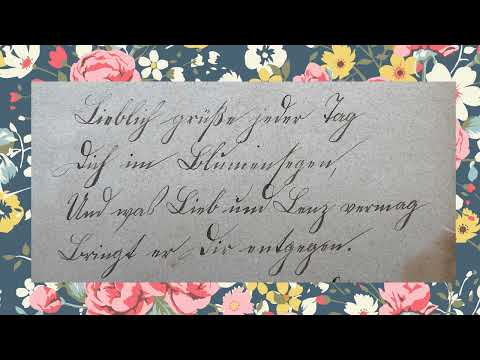 Lieblich grüße jeder Tag
Dich im Blumensegen,
Und was Lieb und Lenz vermag
Bringt er Dir entgegen.